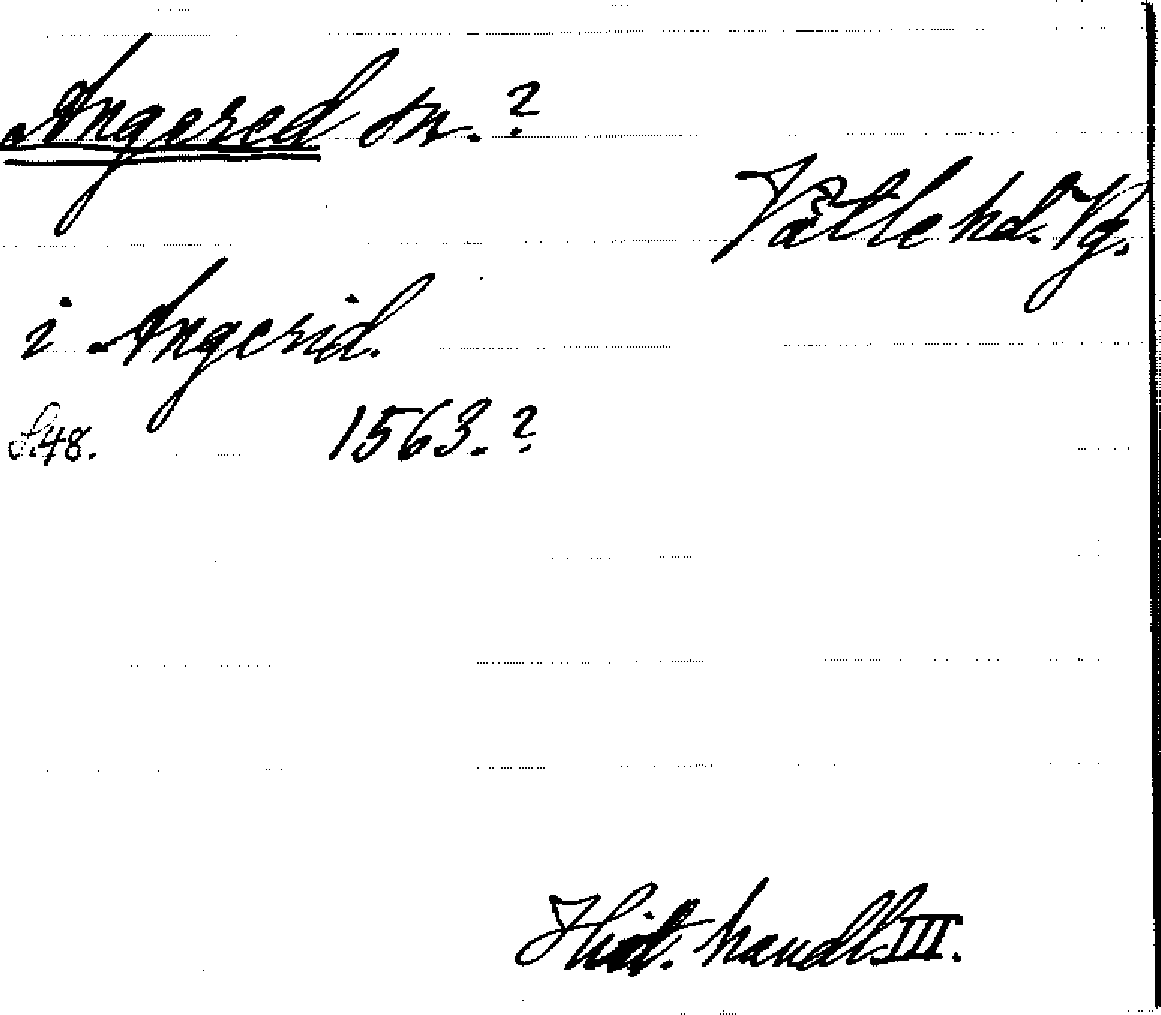 Angered sn. ?
Vättle hd. Vg.
i Angerid.
S.48. 1563. ?
Hist. handl. III.